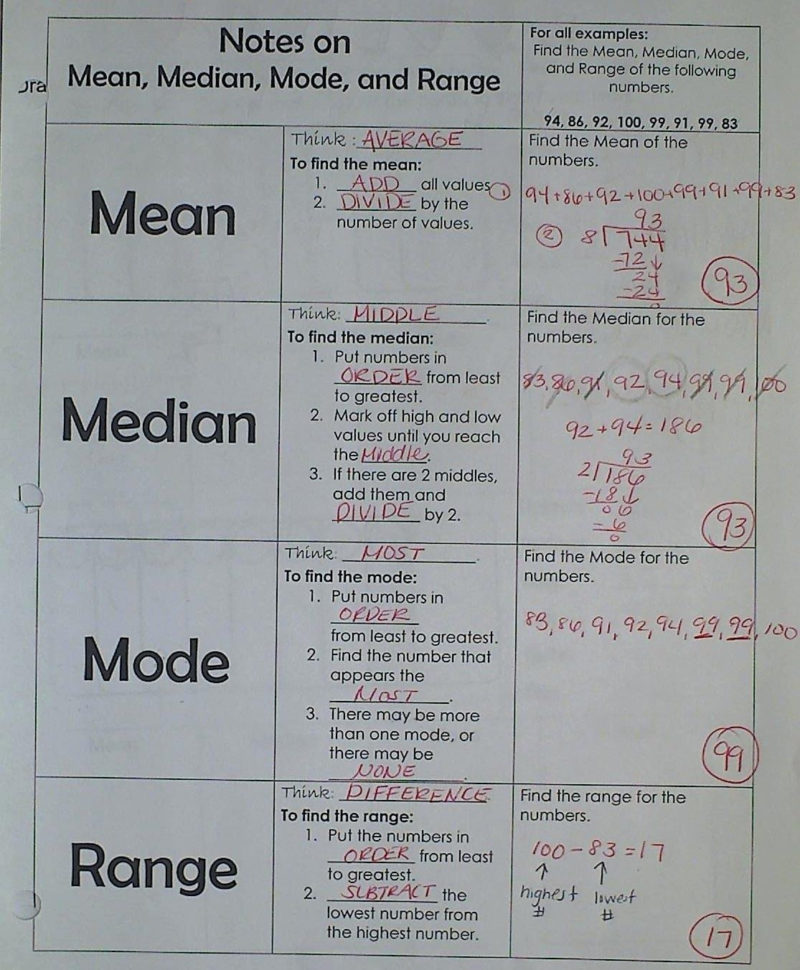 Notes on
Mean, Median, Mode, and Range
For all examples:
Find the Mean, Median, Mode,
and Range of the following
numbers.
94, 86, 92, 100, 99, 91, 99, 83
Mean
Think: AVERAGE
To find the mean:
1. ADD all values
2. DIVIDE by the
number of values.
Find the Mean of the
numbers.
① 94+86+92+100+99+91+99+83
93
② 8⟌744
-72↓
24
-24
0
93
Median
Think: MIDDLE.
To find the median:
1. Put numbers in
ORDER from least
to greatest.
2. Mark off high and low
values until you reach
the Middle.
3. If there are 2 middles,
add them and
DIVIDE by 2.
Find the Median for the
numbers.
83, 86, 91, 92, 94, 99, 99, 100
92+94=186
93
2⟌186
-18↓
06
-6
0
93
Mode
Think: MOST.
To find the mode:
1. Put numbers in
ORDER
from least to greatest.
2. Find the number that
appears the
MOST.
3. There may be more
than one mode, or
there may be
NONE.
Find the Mode for the
numbers.
83, 86, 91, 92, 94, 99, 99, 100
99
Range
Think: DIFFERENCE.
To find the range:
1. Put the numbers in
ORDER from least
to greatest.
2. SUBTRACT the
lowest number from
the highest number.
Find the range for the
numbers.
100-83=17
highest lowest
# #
17